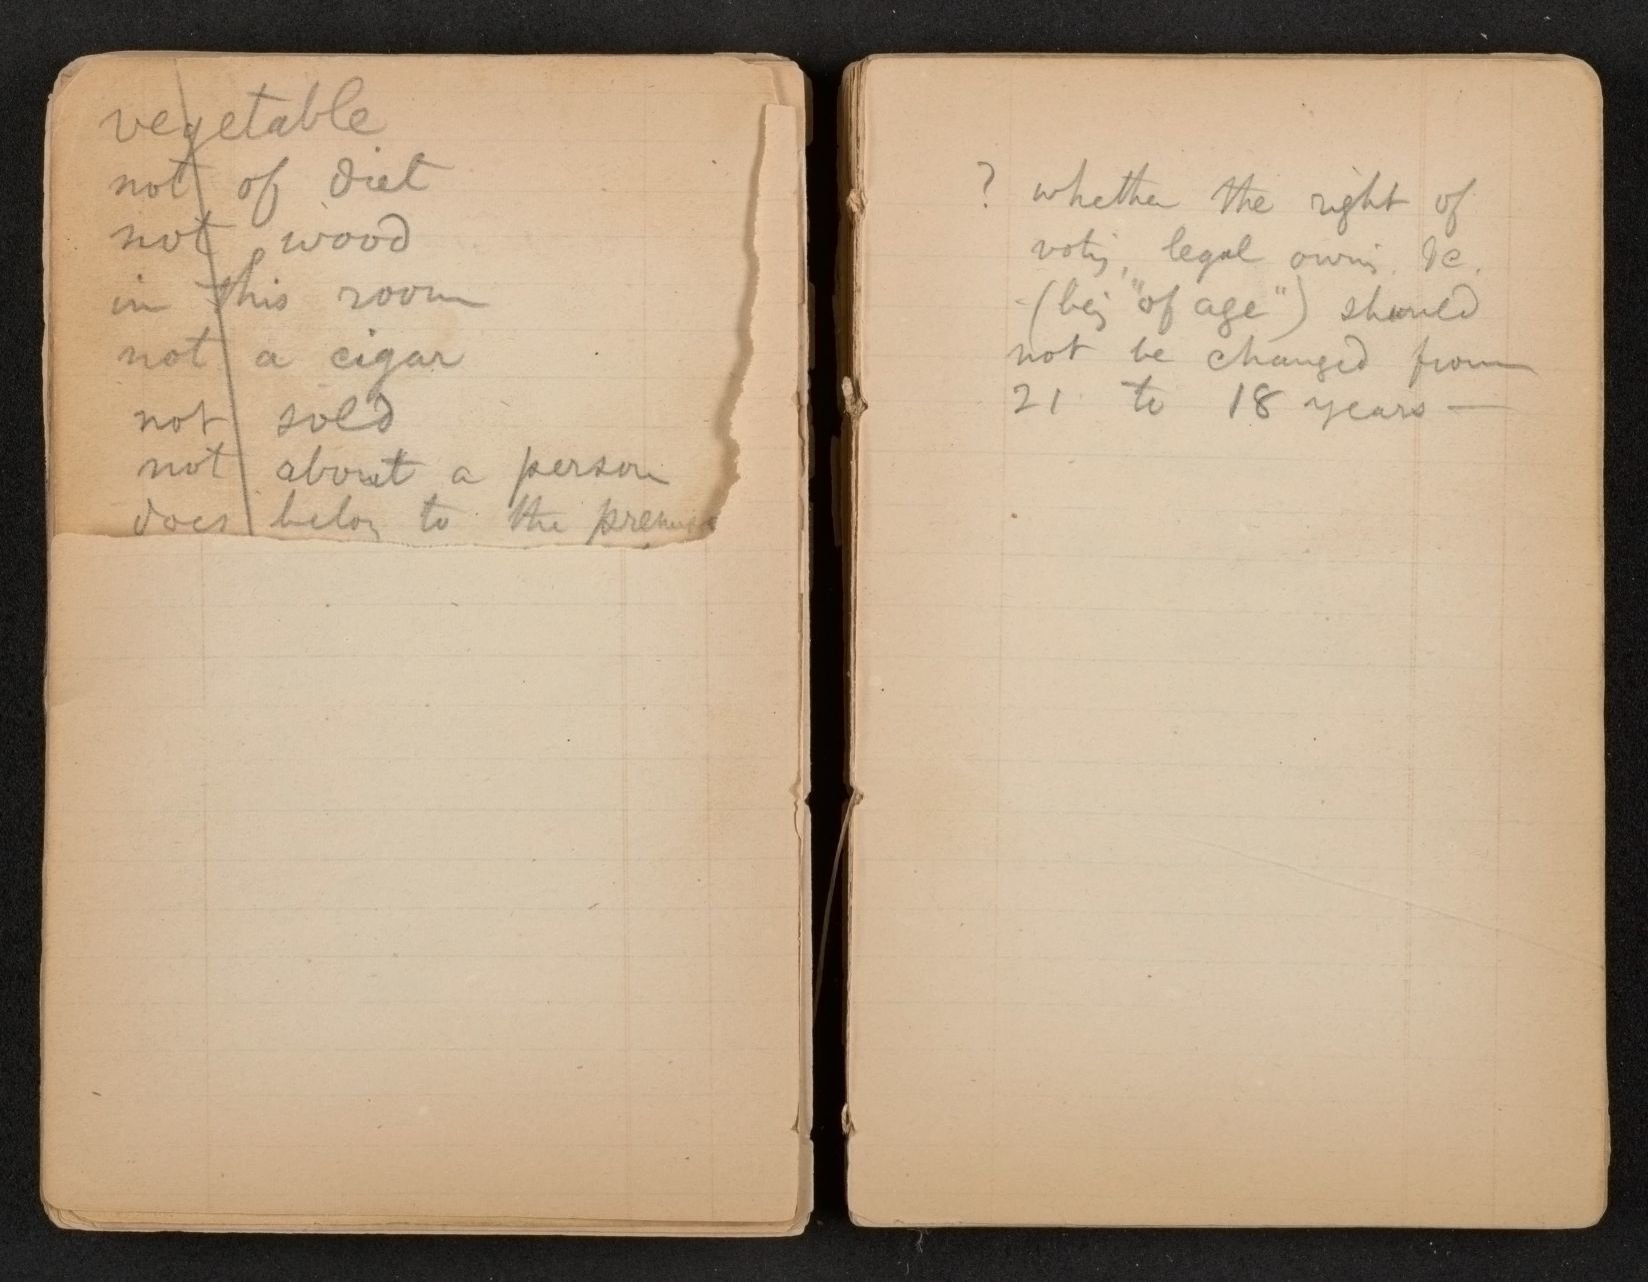 vegetable
not of diet
not wood
in this room
not a cigar
not sold
not about a person
does belong to the premises
? whether the right of
voting, legal owning &c.
(being "of age") should
not be changed from
21 to 18 years —